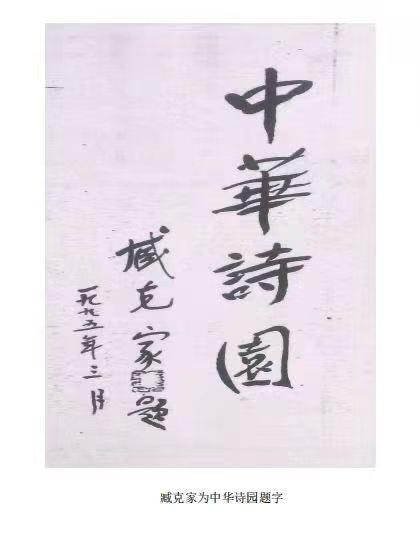 中華詩園
臧克家題
一九九五年三月
臧克家为中华诗园题字